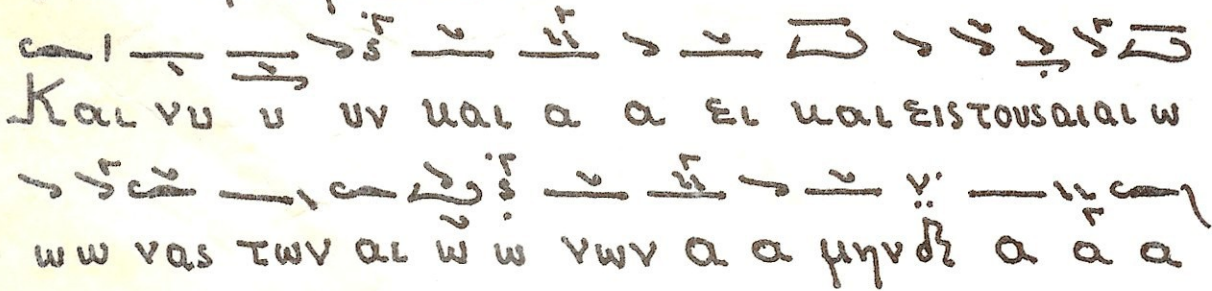 Και νυ υ υν και α α ει και εις τους αι αι ω
ω ω νας των αι ω ω νων α α μην δι α α α